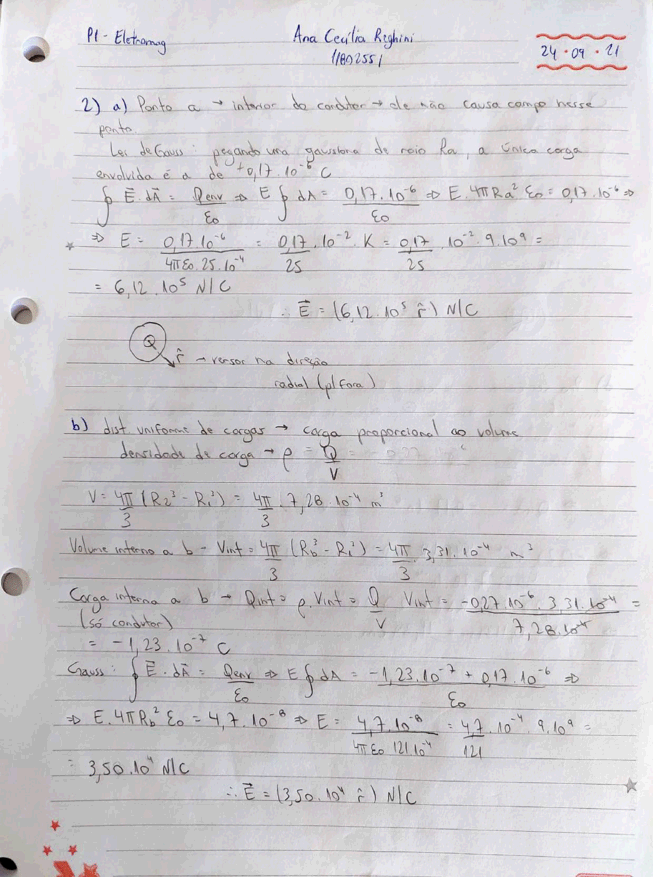 P1 - Eletromag
Ana Cecília Reghini
11802551
24 • 09 • 21
2) a) Ponto a → interior do condutor → ele não causa campo nesse
ponto
Lei de Gauss: pegando uma gaussiana de raio Ra, a única carga
envolvida é a de +0,17.10⁻⁶ C
∮ E⃗.dA⃗ = Qenv/ε₀ ⇒ E ∮ dA = 0,17.10⁻⁶/ε₀ ⇒ E.4πRa² ε₀ = 0,17.10⁻⁶ ⇒
* ⇒ E = 0,17.10⁻⁶/4πε₀.25.10⁻⁴ = 0,17/25 .10⁻² K = 0,17/25 .10⁻².9.10⁹ =
= 6,12.10⁵ N/C
∴ E⃗ = (6,12.10⁵ r̂) N/C
Q
r̂ → versor na direção
radial (p/ fora)
b) dist. uniforme de cargas → carga proporcional ao volume
densidade de carga → ρ = Q/V
V = 4π/3 (R₂³ - R₁³) = 4π/3 . 7,28.10⁻⁴ m³
Volume interno a b - Vint = 4π/3 (Rb³ - R₁³) = 4π/3 . 3,31.10⁻⁴ m³
Carga interna a b → Qint = ρ.Vint = Q/V Vint = -0,27.10⁻⁶ . 3,31.10⁻⁴/7,28.10⁻⁴ =
(só condutor)
= -1,23.10⁻⁷ C
Gauss: ∮ E⃗.dA⃗ = Qenv/ε₀ ⇒ E ∮ dA = -1,23.10⁻⁷ + 0,17.10⁻⁶/ε₀ ⇒
⇒ E.4πRb² ε₀ = 4,7.10⁻⁸ ⇒ E = 4,7.10⁻⁸/4πε₀ 121.10⁻⁴ = 4,7.10⁻⁴/121 . 9.10⁹ =
= 3,50.10⁴ N/C
∴ E⃗ = (3,50.10⁴ r̂) N/C